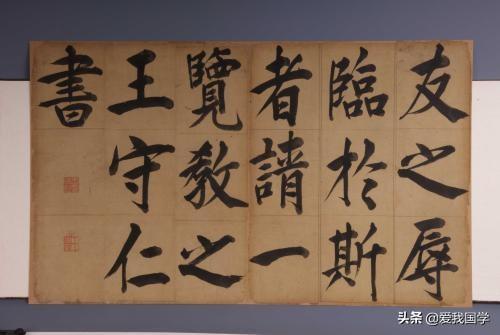 友之辱
臨於斯
者請一
覽教之
王守仁
書
头条 @爱我国学